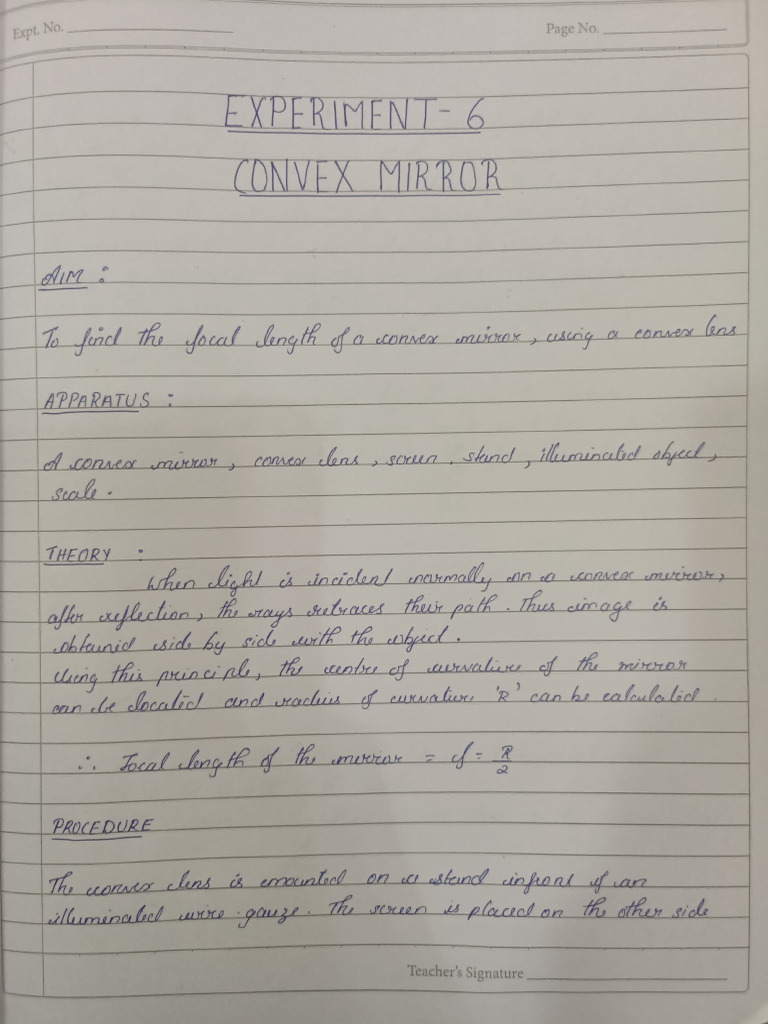 Expt. No.
Page No.
EXPERIMENT - 6
CONVEX MIRROR
AIM :
To find the focal length of a convex mirror, using a convex lens
APPARATUS :
A convex mirror, convex lens, screen, stand, illuminated object,
scale.
THEORY :
When light is incident normally on a convex mirror,
after reflection, the rays retraces their path. Thus image is
obtained side by side with the object.
Using this principle, the centre of curvature of the mirror
can be located and radius of curvature 'R' can be calculated.
∴ Focal length of the mirror = f = R/2
PROCEDURE
The convex lens is mounted on a stand infront of an
illuminated wire gauze. The screen is placed on the other side
Teacher's Signature